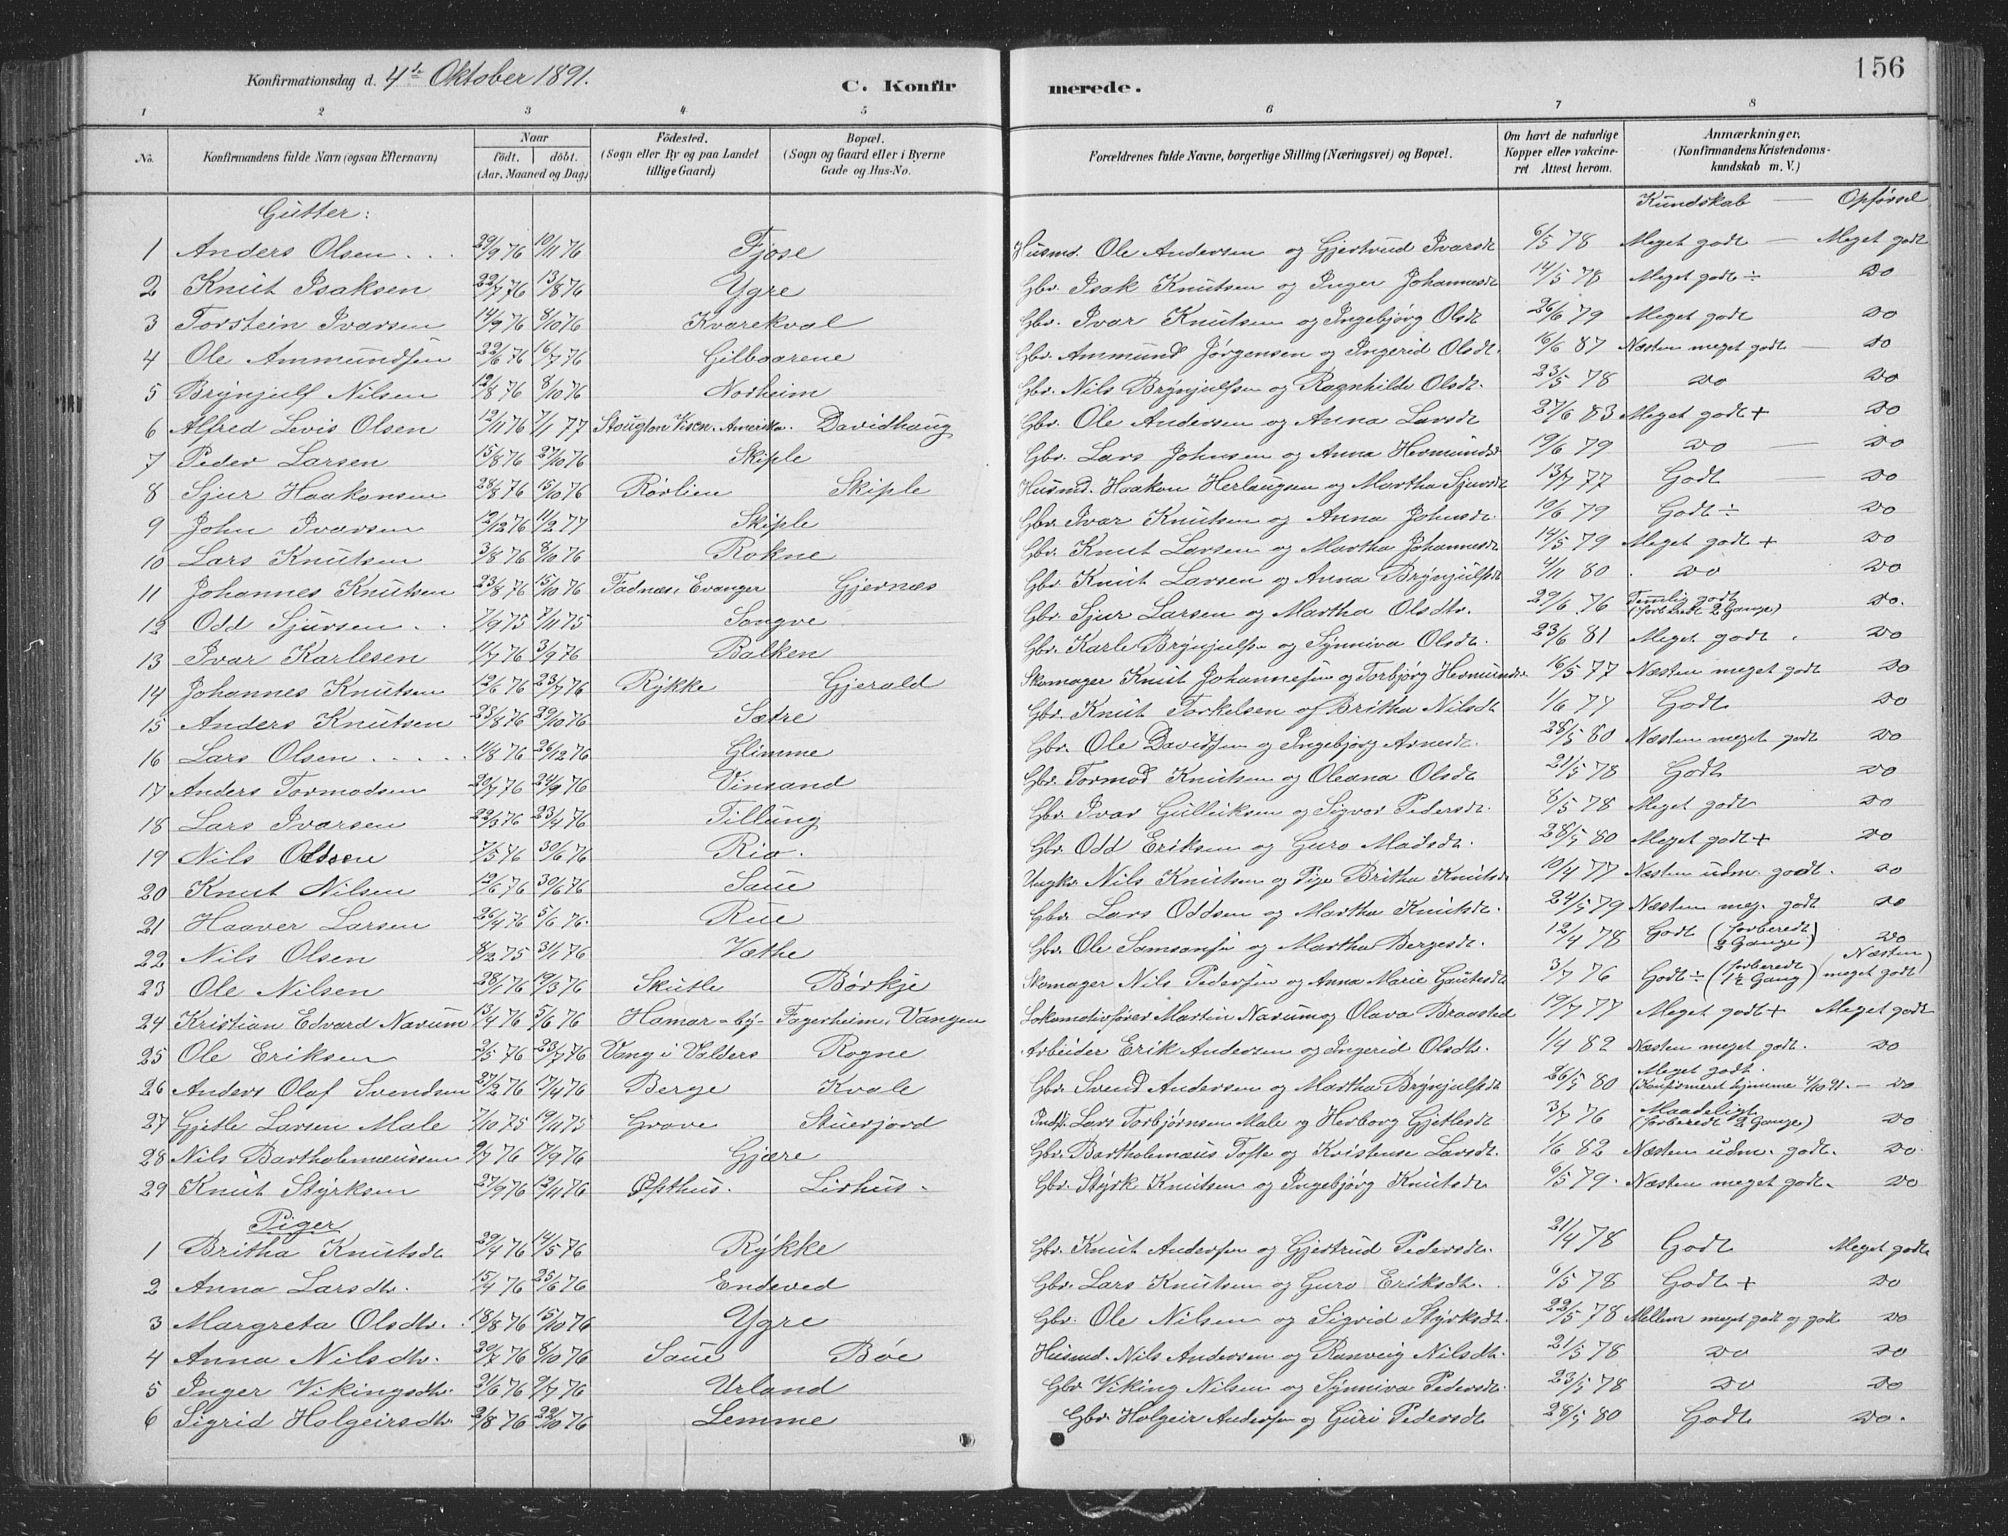 Konfirmationsdag d. 4de Oktober 1891.
C. Konfirmerede.
156
1 2 3 4 5 6 7 8
No. Konfirmandens fulde Navn (ogsaa Efternavn) Naar født. døbt. (Aar, Maaned og Dag) Födested. (Sogn eller By og paa Landet tillige Gaard) Bopæl. (Sogn og Gaard eller i Byerne Gade og Hus-No. Forældrenes fulde Navne, borgerlige Stilling (Næringsvei) og Bopæl. Om havt de naturlige Kopper eller vakcineret Attest herom. Anmærkninger. (Konfirmandens Kristendomskundskab m. V.)
Gutter: Kundskab — Opførsel
1 Anders Olsen 29/9 76 10/11 76 Fjose Husmd. Ole Andersen og Gjertrud Ivarsdt 6/5 78 Meget godt — Meget godt
2 Knut Isaksen 22/7 76 13/8 76 Ygre Gbr. Isak Knutsen og Inger Johannesdt 14/5 78 Meget godt ÷ do
3 Torstein Ivarsen 14/9 76 8/10 76 Kvarekval Gbr. Ivar Knutsen og Ingebjørg Olsdt 26/6 79 Meget godt do
4 Ole Ammundsen 22/6 76 16/7 76 Gilbaarene Gbr. Ammund Jørgensen og Ingerid Olsdt. 16/6 87 Næsten meget godt — do
5 Brynjulf Nilsen 12/8 76 8/10 76 Norheim Gbr. Nils Brynjulfsen og Ragnhilde Olsdt. 23/5 78 do do
6 Alfred Levis Olsen 12/11 76 7/1 77 Stougton Visen. Amerika. Davidhaug Gbr. Ole Andersen og Anna Larsdt 27/6 83 Meget godt + do
7 Peder Larsen 15/8 76 27/10 76 Skiple Gbr. Lars Johnsen og Anna Hermundsd 19/6 79 do — do
8 Sjur Haakonsen 28/8 76 15/10 76 Rørlien Skiple Husmd. Haakon Herlaugsen og Martha Sjursdt 13/7 77 Godt — do
9 John Ivarsen 12/12 76 11/2 77 Skiple Gbr. Ivar Knutsen og Anna Johnsdt. 10/6 79 Godt ÷ do
10 Lars Knutsen 3/8 76 8/10 76 Rokne Gbr. Knut Larsen og Martha Johannesdt 14/5 79 Meget godt + do
11 Johannes Knutsen 23/8 76 15/10 76 Fadnes, Evanger Gjernæs Gbr. Knut Larsen og Anna Brynjulfsdt 4/11 80 do do
12 Odd Sjursen 7/9 75 7/11 75 Songve Gbr. Sjur Larsen og Martha Olsdtr. 29/6 76 Temlig godt (forberedt 2 Gange) do.
13 Ivar Karlesen 11/7 76 3/9 76 Balken Gbr. Karle Brynjulfsn og Synniva Olsdt. 23/6 81 Meget godt. do
14 Johannes Knutsen 12/6 76 23/7 76 Rykke Gjerald Skomager Knut Johannesen og Torbjørg Hermundsdr 16/5 77 Næsten meget godt do
15 Anders Knutsen 23/8 76 29/10 76 Sætre Gbr. Knut Torkelsen og Britha Nilsdt 1/6 77 Godt do
16 Lars Olsen 11/8 76 26/12 76 Glimme Gbr. Ole Davidsen og Ingebjørg Arnesdt. 28/5 80 Næsten meget godt do
17 Anders Tormodsen 20/7 76 24/9 76 Vinsand Gbr. Tormod Knutsen og Oleana Olsdt 21/5 78 Godt do
18 Lars Ivarsen 22/3 76 23/4 76 Tillung Gbr. Ivar Gulleiksen og Sigvor Pedersdt. 8/5 78 Meget godt do
19 Nils Oddsen 7/5 76 30/6 76 Rio. Gbr. Odd Eriksen og Guro Madsdt. 28/5 80 Meget godt + do
20 Knut Nilsen 12/6 76 30/6 76 Saue Ungkr Nils Knutsen og Pige Britha Knutsdt 10/4 77 Næsten udm. godt. do
21 Haaver Larsen 26/4 76 5/6 76. Rue Gbr. Lars Oddsen og Martha Knutsdt. 24/5 79 Næsten meg. godt do
22 Nils Olsen 8/2 75 3/11 75 Væthe Gbr. Ole Samsonsn og Martha Bergesdt. 12/4 78 Godt (forberedt 2 Gange) do
23 Ole Nilsen 28/1 76 19/3 76 Skutle Børkje Skomager Nils Pedersen og Anna Marie Gautesdt 3/7 76 Godt ÷ (forberedt 1½ Gang) (Næsten meget godt)
24 Kristian Edvard Narum 13/4 76 5/6 76 Hamar - by - Fagerheim, Vangen Lokomotivfører Martin Narum og Olava Braasted 19/7 77 Meget godt + Meget godt
25 Ole Eriksen 2/5 76 23/7 76 Vang i Valders Rogne Arbeider Erik Andersen og Ingerid Olsdtr. 1/4 82 Næsten meget godt. do
26 Anders Olaf Svendsen 27/2 76 17/4 76 Berge Kvale Gbr. Svend Andersen og Martha Brynjulfsdt 26/5 80 Meget godt. (Konfirmeret hjemme 4/10 91. — do
27 Gjetle Larsen Male 7/10 75 19/11 75 Grove Stuerjord Indst. Lars Torbjørnsen Male og Herborg Gjetlesdt 3/7 76 Maadeligt (forberedt 2 Gange) do
28 Nils Bartholemæussen 9/7 76 17/9 76 Gjære Gbr. Bartholemæus Tofte og Kristense Larsdt. 1/6 82 Næsten udm. godt. do.
29 Knut Styrksen 27/9 76 12/11 76 Øfsthus. Lirhus. Gbr. Styrk Knutsen og Ingebjørg Knutsdt 9/5 79. Næsten meget godt. do
Piger
1 Britha Knutsdt 29/4 76 14/5 76 Rykke Gbr. Knut Andersen og Gjertrud Pedersdt. 21/4 78 Godt Meget godt
2 Anna Larsdtr. 15/4 76 25/6 76 Endeved Gbr. Lars Knutsen og Guro Eriksdt. 6/5 78 Godt + do
3 Margreta Olsdtr. 18/8 76 15/10 76 Ygre Gbr. Ole Nilsen og Sigrid Styrksdt. 22/5 78 Mellem meget godt og godt do
4 Anna Nilsdtr. 20/7 76 8/10 76 Saue Bøe Husmd. Nils Andersen og Ranveig Nilsdt. 21/5 78 do do
5 Inger Vikingsdtr. 21/6 76 9/7 76 Urland Gbr Viking Nilsen og Synniva Pedersdt. 23/5 78 do do
6 Sigrid Holgeirsdtr 2/8 76 22/10 76 Lemme Gbr. Holgeir Andersen og Guri Pedersdt 28/5 80 Godt do.